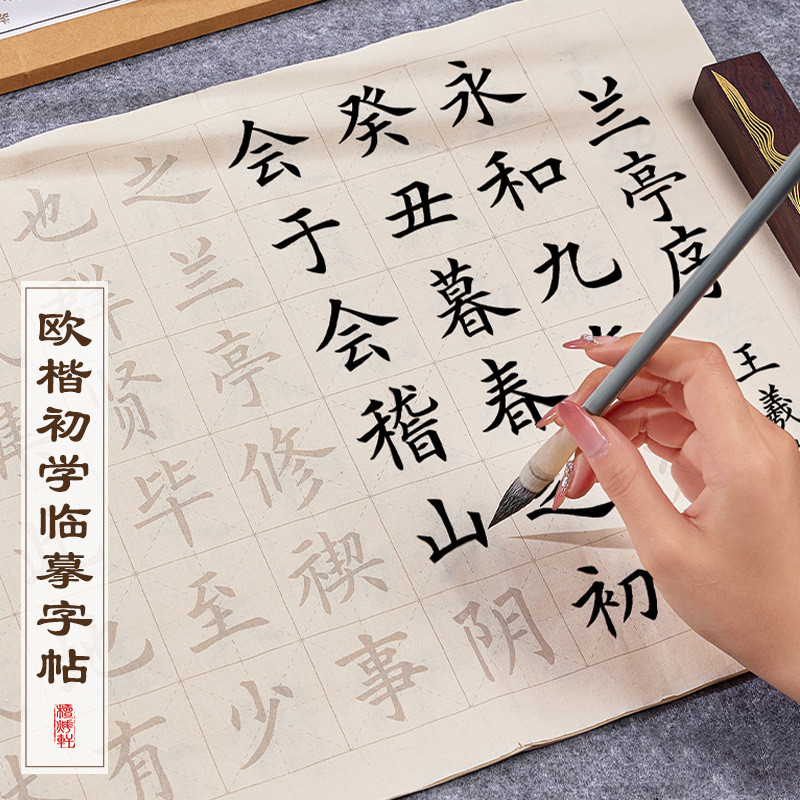 兰亭序 王羲
永和九
癸丑暮春之初
会于会稽山阴
之兰亭修禊事
也群贤毕至少
集 有
欧楷初学临摹字帖